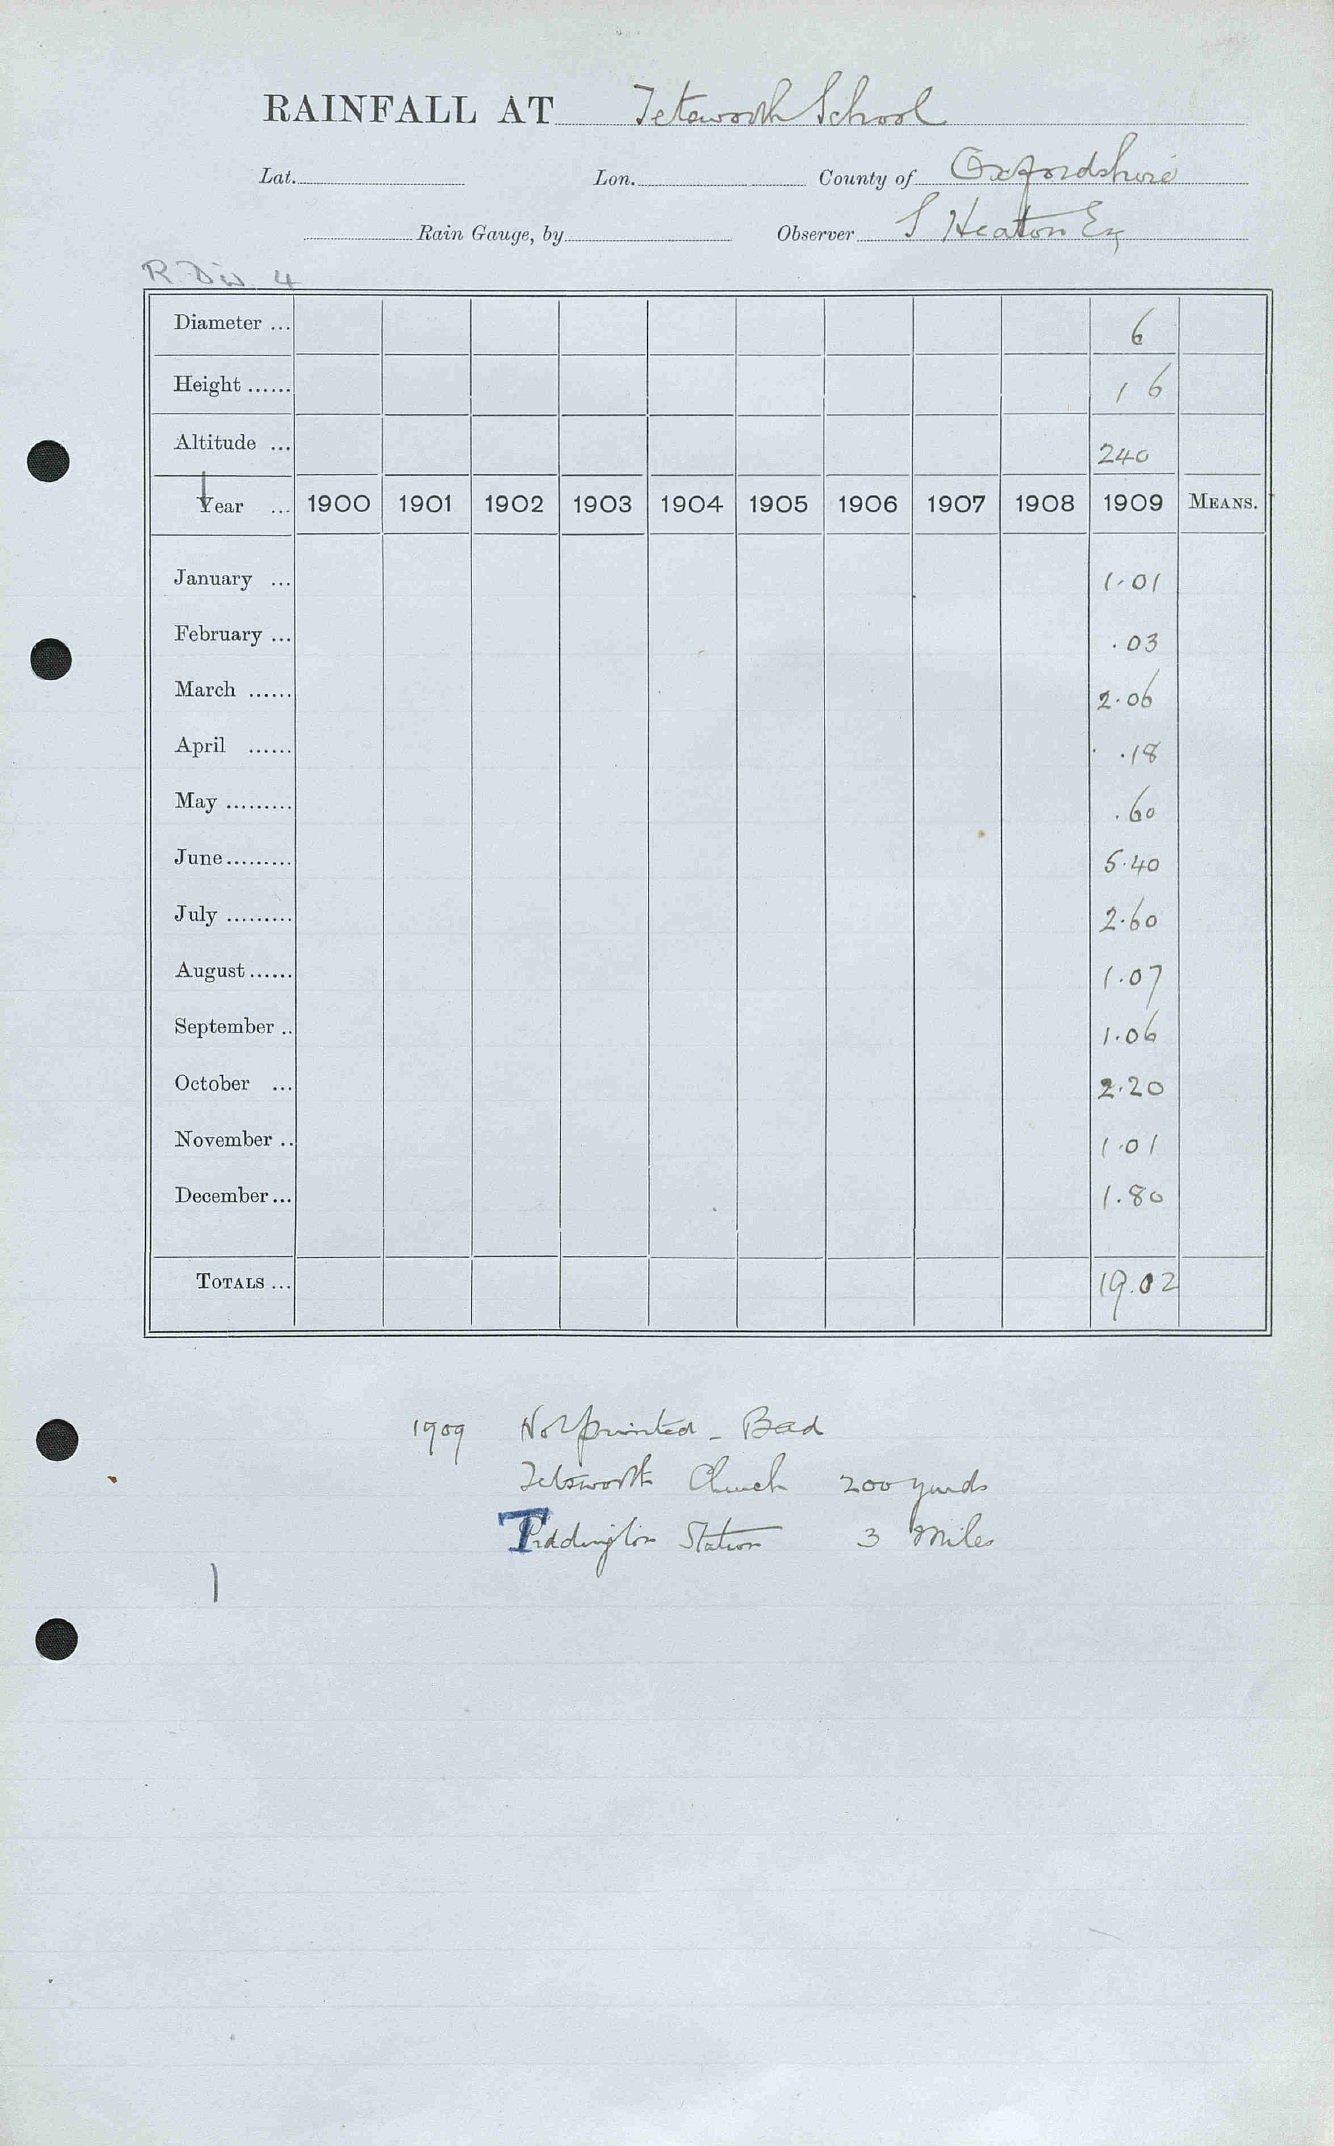 RAINFALL AT Tetsworth School
Lat. Lon. County of Oxfordshire
Rain Gauge, by Observer S Heaton Esq
R Div 4
Diameter ... 6
Height ...... 1 6
Altitude ... 240
Year ... 1900 1901 1902 1903 1904 1905 1906 1907 1908 1909 MEANS.
January ... 1.01
February ... .03
March ...... 2.06
April ...... .18
May ......... .60
June ......... 5.40
July ......... 2.60
August ...... 1.07
September .. 1.06
October ... 2.20
November .. 1.01
December ... 1.80
TOTALS ... 19.02
1909 Not printed - Bad
Tetsworth Church 200 yards
Tiddington Station 3 Miles